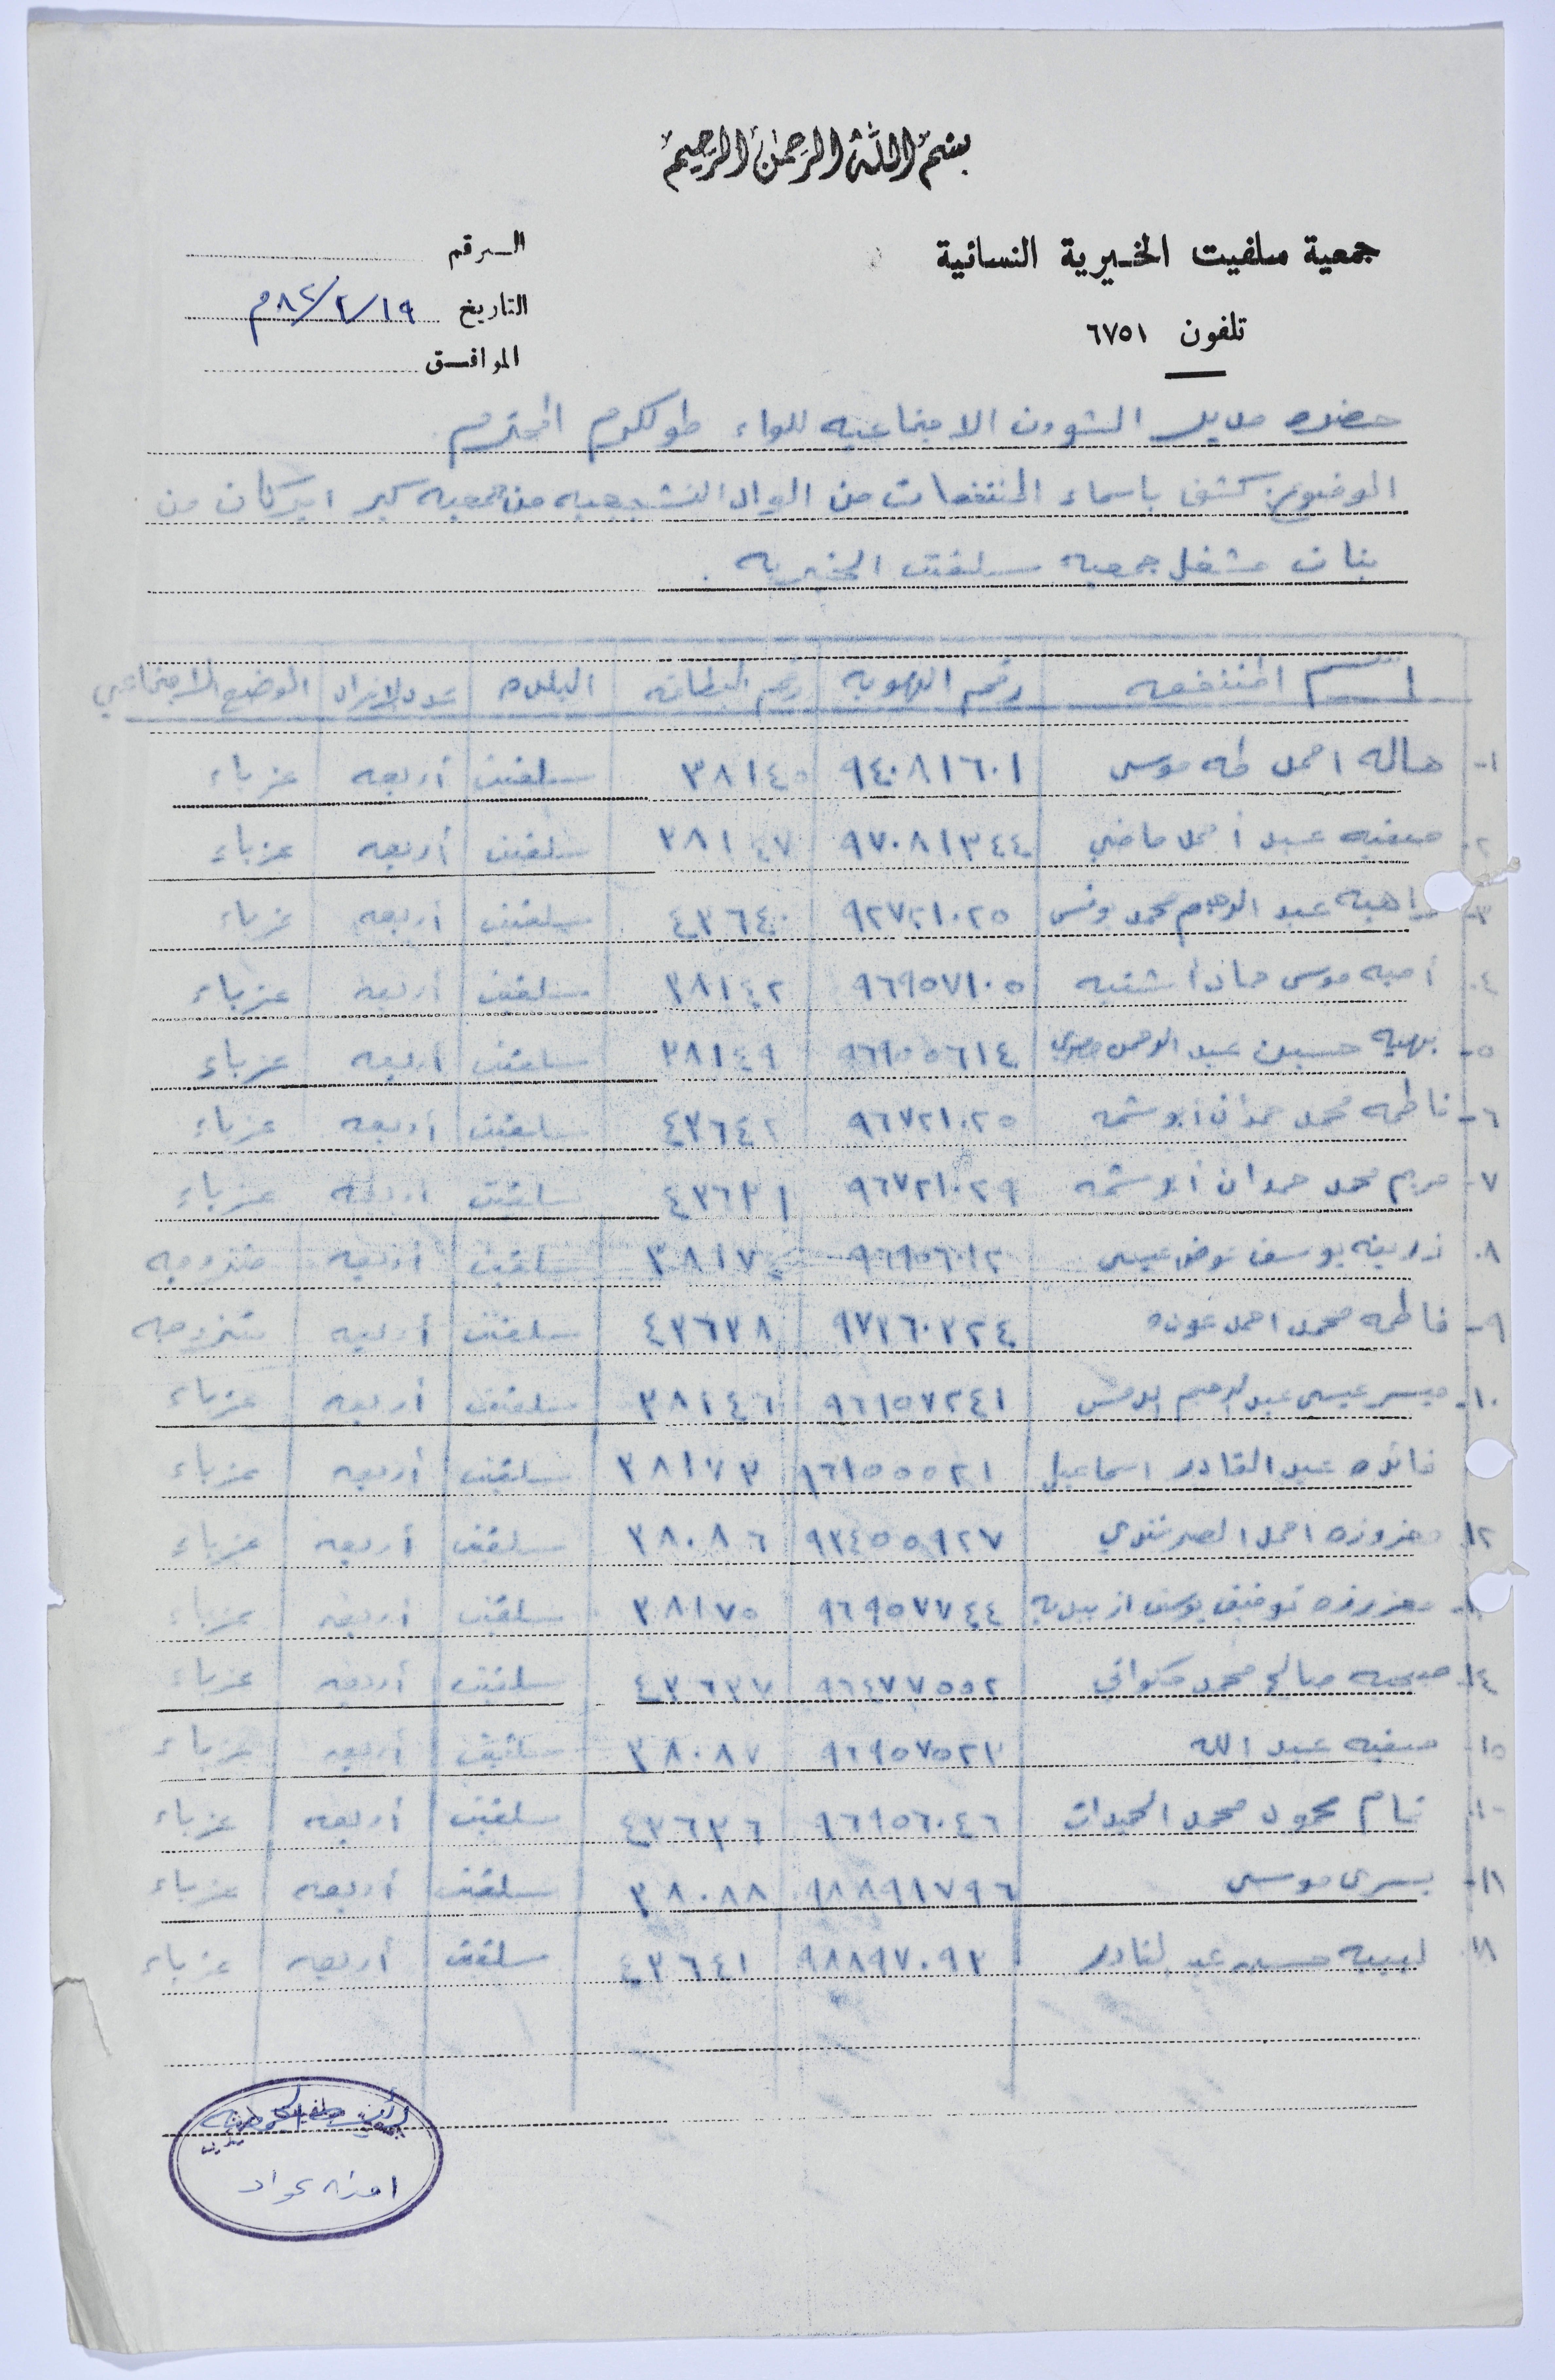 بسم الله الرحمن الرحيم
جمعية سلفيت الخيرية النسائية
تلفون ٦٧٥١
الرقم
التاريخ ٨٢/٢/١٩م
الموافق
حضرة مدير الشوون الاجتماعيه للواء طولكرم المحترم
الموضوع: كشف باسماء المنتفعات من المواد التشجيعيه من جمعيه كير اميركان من
بنات مشغل جمعيه سلفيت الخيريه .
اسم المنتفعه رقم الهويه رقم البطاقه البلده عدد الافراد الوضع الاجتماعي
١- هاله احمد طه موسى ٩٤٠٨١٦٠١ ٣٨١٤٥ سلفيت أربعه عزباء
٢- صفيه عبد أحمد ماضي ٩٧٠٨١٣٤٤ ٣٨١٤٧ سلفيت أربعه عزباء
٣- راهبه عبد الرحيم محمد يونس ٩٢٧٢١٠٢٥ ٤٣٦٤٠ سلفيت أربعه عزباء
٤- موسى ٩٦٩٥٧١٠٥ ٣٨١٤٢ سلفيت أربعه عزباء
٥- بهيه حسين عبد الرحمن ٩٦٩٥٥٦١٤ ٣٨١٤٩ سلفيت أربعه عزباء
٦- فاطمه محمد حمدان ابو شمه ٩٦٧٢١٠٢٥ ٤٣٦٤٢ سلفيت أربعه عزباء
٧- مريم محمد حمدان ابو شمه ٩٦٧٢١٠٢٩ ٤٣٦٣١ سلفيت أربعه عزباء
٨- يوسف عيسى ٩٦٩٥٦٠١٢ ٣٨١٧٤ سلفيت أربعه متزوجه
٩- فاطمه محمد احمد عوده ٩٧٣٦٠٣٢٤ ٤٣٦٣٨ سلفيت أربعه متزوجه
١٠- ميسر عيسى عبد الرحيم ٩٦٩٥٧٢٤١ ٣٨١٤٦ سلفيت أربعه عزباء
فائده عبد القادر اسماعيل ٩٦٩٥٥٥٢١ ٣٨١٧٣ سلفيت أربعه عزباء
١٢- معزوزه احمد ٩٣٤٥٥٩٢٧ ٣٨٠٨٦ سلفيت أربعه عزباء
معزوزه توفيق يوسف ازبيديه ٩٦٩٥٧٧٤٤ ٣٨١٧٥ سلفيت أربعه عزباء
١٤- صبحيه صالح محمد ٩٦٤٧٧٥٥٢ ٤٣٦٣٧ سلفيت أربعه عزباء
١٥- صفيه عبد الله ٩٦٩٥٧٥٢٣ ٣٨٠٨٧ سلفيت أربعه عزباء
تمام محمود محمد ٩٦٩٥٦٠٤٦ ٤٣٦٣٦ سلفيت أربعه عزباء
يسرى موسى ٩٨٨٩١٧٩٦ ٣٨٠٨٨ سلفيت أربعه عزباء
لبيبه حسين عبد القادر ٩٨٨٩٧٠٩٣ ٤٣٦٤١ سلفيت أربعه عزباء
امنه عواد